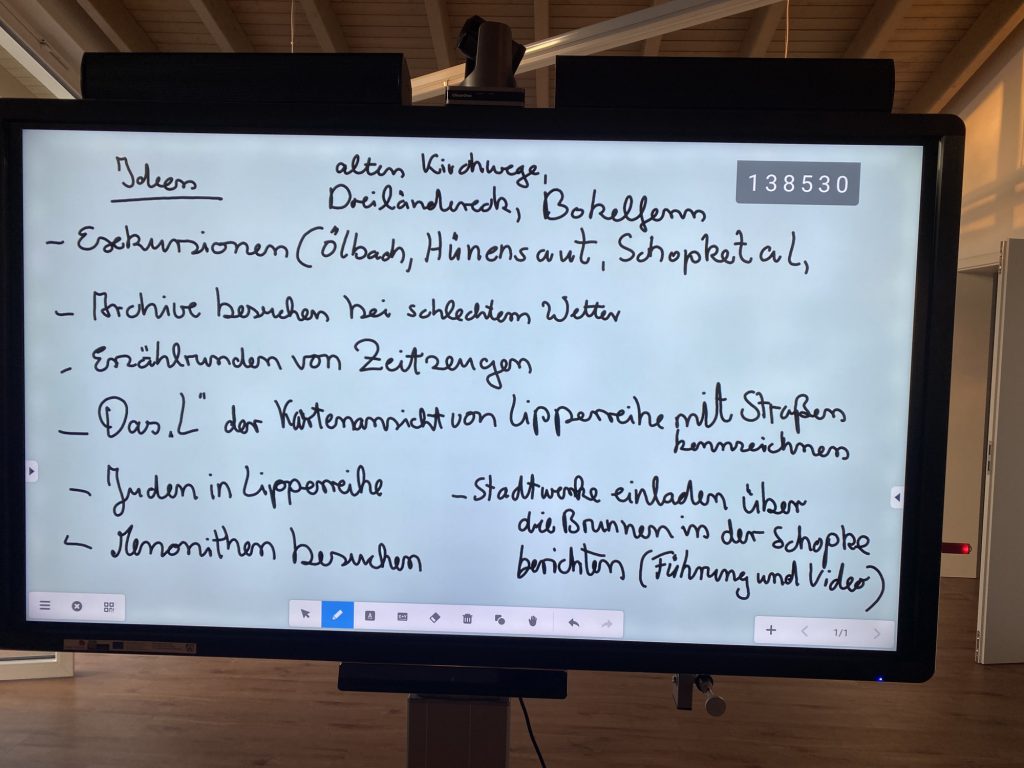 Ideen
alten Kirchwege,
Dreiländereck, Bokelfenn
138530
- Exkursionen (Ölbach, Hünensaut, Schopketal,
- Archive besuchen bei schlechtem Wetter
- Erzählrunden von Zeitzeugen
- Das „L" der Kartenansicht von Lipperreihe mit Straßen
kennzeichnen
- Juden in Lipperreihe
- Menonithen besuchen
- Stadtwerke einladen über
die Brunnen in der Schopke
berichten (Führung und Video)
1/1